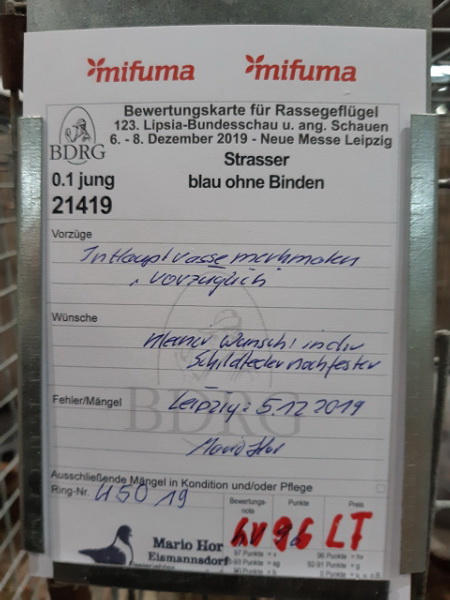 mifuma mifuma
Bewertungskarte für Rassegeflügel
123. Lipsia-Bundesschau u. ang. Schauen
6. - 8. Dezember 2019 - Neue Messe Leipzig
BDRG
Strasser
0.1 jung
blau ohne Binden
21419
Vorzüge
In Hauptrassemerkmalen
vorzüglich
Wünsche
kleiner Wunsch! in der
Schildfeder noch fester
Fehler/Mängel
Leipzig: 5.12 2019
BDRG
Mario Hor
Ausschließende Mängel in Kondition und/oder Pflege
Ring-Nr. 450 19
Bewertungs-
note
Punkte
Preis
hv 96 LT
Mario Hor
Eismannsdorf
97 Punkte = v
96 Punkte = hv